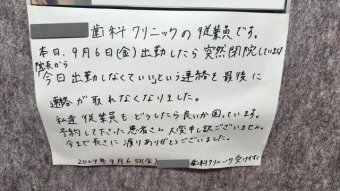 歯科クリニックの従業員です。
本日、9月6日(金)出勤したら突然閉院しています
院長から
今日出勤しなくていいという連絡を最後に
連絡が取れなくなりました。
私達従業員もどうしたら良いか困っています。
予約して下さった患者さん大変申し訳ございません。
今まで長きに渡りありがとうございました。
2024年9月6日(金) 歯科クリニック受付